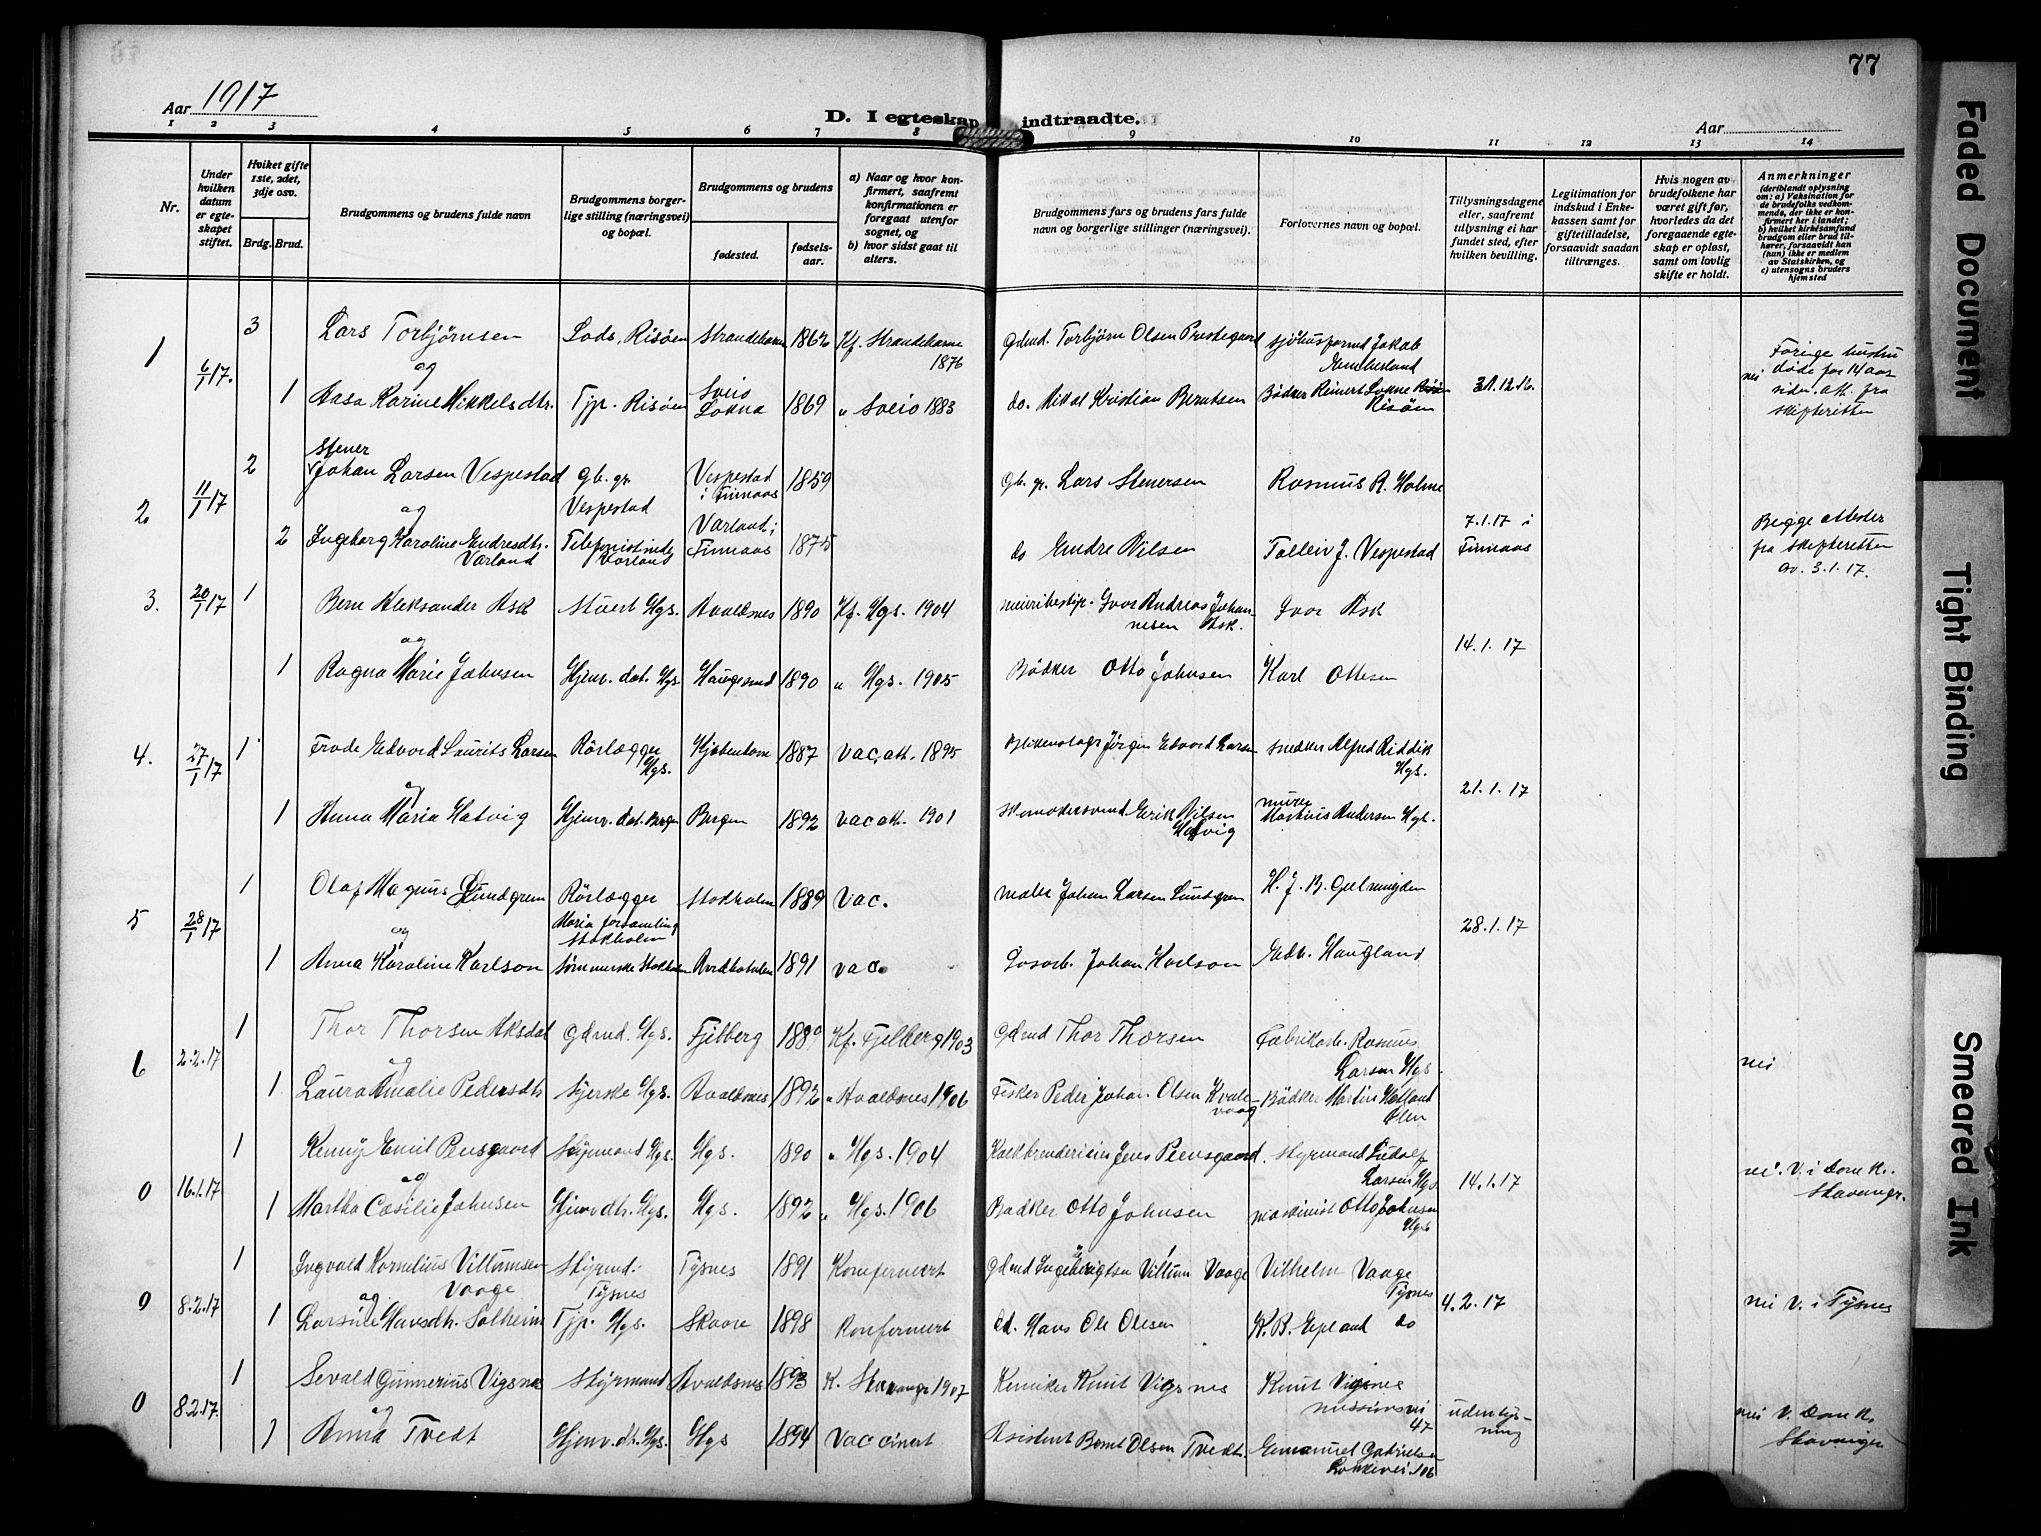 77
Aar 1917
D. I egteskap indtraadte.
Aar
1 2 3 4 5 6 7 8 9 10 11 12 13 14
Nr.
Under hvilken datum er egteskapet stiftet.
Hviket gifte 1ste, 2det, 3dje osv.
Brdg. Brud.
Brudgommens og brudens fulde navn
Brudgommens borgerlige stilling (næringsvei) og bopæl.
Brudgommens og brudens
fødested.
fødselsaar.
a) Naar og hvor konfirmert, saafremt konfirmationen er foregaat utenfor sognet, og
b) hvor sidst gaat til alters.
Brudgommens fars og brudens fars fulde navn og borgerlige stillinger (næringsvei).
Forlovernes navn og bopæl.
Tillysningsdagene eller, saafremt tillysning ei har fundet sted, efter hvilken bevilling.
Legitimation for indskud i Enkekassen samt for giftetilladelse, forsaavidt saadan tiltrænges.
Hvis nogen av brudefolkene har været gift før, hvorledes da det foregaaende egteskap er opløst, samt om lovlig skifte er holdt.
Anmerkninger
(deriblandt oplysning om: a) Vaksination for de brudefolks vedkommende, der ikke er konfirmert her i landet; b) hvilket kirkesamfund brudgom eller brud tilhører, forsaavidt han (hun) ikke er medlem av Statskirken, og c) utensogns bruders hjemsted
1 6/1 17. 3 Lars Torbjørnsen Lods, Risøen Strandebarm 1862 Kf. Strandebarm 1876 Gdmd. Torbjørn Olsen Prestegaard Jakob
og
1 Aasa Karine Mikkelsdtr. Tjp. Risøen Sveio Lokna 1869 " Sveio 1883 do. Mikal Kristian Berntsen Bødker Reinert Lokne Risøen 31.12.16. nei
Forige hustru døde for 14 aar siden. att. fra skifteretten
2 11/1 17 2 Stener Johan Larsen Vespestad Gb. gr. Vespestad Vespestad i Finnaas 1859 Gb. gr. Lars Stenersen Rasmus R. Holme
og
2 Ingeborg Karoline Endresdtr. Varland Telefonistinde Varland Varland i Finnaas 1875 do Endre Nilsen Tolleiv J. Vespestad 7.1.17 i Finnaas Begge attester fra skifteretten av. 3.1.17.
3. 20/1 17 1 Bern Aleksander Ask Stuert Hgs. Avaldsnes 1890 Kf. Hgs. 1904 Ivar Andreas Johannesen Ask. Ivar Ask
og 14.1.17
1 Ragna Marie Johnsen Hjemv. dat. Hgs. Haugesund 1890 " Hgs. 1905 Bødker Otto Johnsen Karl Ottesen
4. 27/1 17 1 Frode Edvard Laurits Larsen Rørlægger Hgs. Kjøbenhavn 1887 Vac. att. 1895 Jørgen Edvard Larsen Snedker Alfred Riddik Hgs.
og 21.1.17
1 Anna Maria Hatvig Hjemv. dat. Bergen Bergen 1892 Vac att. 1901 Skomakersvend Erik Nilsen Hatvig murer Markus Andersen Hgs.
5 28/1 17 1 Olaf Magnus Lundgren Rørlægger Maria forsamling Stokholm Stokholm 1889 Vac. maler Johan Larsen Lundgren H. J. B. Gulmøyden
og 28.1.17
1 Anna Karoline Karlson Sømmerske Stokholm 1891 Vac. Johan Karlson Edv. Haugland
6 2.2.17 1 Thor Thorsen Aksdal Gdmd. Hgs. Fjelberg 1889 Kf. Fjelberg 1903 Gdmd Thor Thorsen Fabrikarb. Rasmus Larsen Hgs.
og nei
1 Laura Amalie Pedersdtr. Syerske Hgs. Avaldsnes 1892 " Avaldsnes 1906 Fisker Peder Johan Olsen Kvalevaag Bødker Martin Hetland Ølen
0 16.1.17 1 Emil Peersgaard Styrmand Hgs. Hgs. 1890 " Hgs. 1904 Jens Peersgaard. Styrmand Ludolf Larsen Hgs
og 14.1.17 nei. V. i Domk. Stavanger.
1 Martha Cæsilie Johnsen Hjemvdtr. Hgs. Hgs. 1892 " Hgs. 1906 Bødker Otto Johnsen maskinist Otto Johnsen Hgs
9 8.2.17 1 Ingvald Kornelius Villumsen Vaage Styrmd. Tysnes Tysnes 1891 Konfermert Gdmd Ingebrigtsen Villum Vaage Vilhelm Vaage Tysnes
og 4.2.17 nei V. i Tysnes
1 Larsine Hansdtr. Solheim Tjp. Hgs. Skaare 1898 Konfermert Gd. Hans Ole Olesen K. B. Epland do
0 8.2.17. 1 Sevald Gunnerius Vigsnes Styrmand Avaldsnes 1893 K. Stavanger 1907 Kemiker Knut Vigsnes Knut Vigsnes missionsvei 47
og uden lysning nei V. Domk. Stavanger
1 Anna Tvedt Hjemv. dtr. Hgs. Hgs 1894 Vaccinert Asistent Bernt Olsen Tvedt. Emanuel Gabrielsen 106
Faded Document
Tight Binding
Smeared Ink